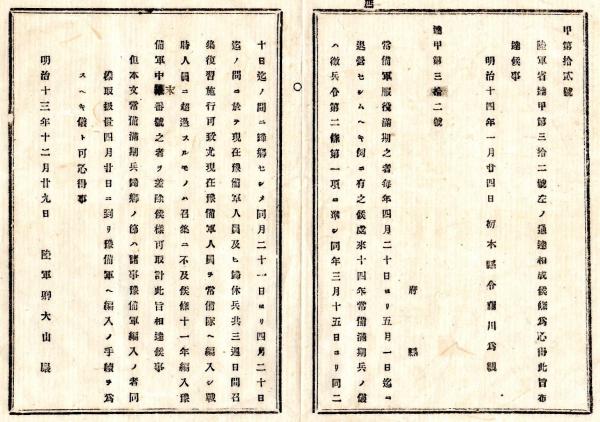 甲第拾貳號
陸軍省達甲第三拾二號左ノ通達相成候條爲心得此旨布
達候事
明治十四年一月廿四日 栃木縣令 川爲
達甲第三拾二號
府縣
常備軍服役滿期之者每年四月二十日ヨリ五月一日迄ニ
退營セシムヘキ例ニ有之候處來十四年常備滿期兵ノ儀
ハ徵兵令第二條第一項ニ準シ同年三月十五日ヨリ同二
十日迄ノ間ニ歸鄉セシメ同月二十一日ヨリ四月二十日
迄ノ間ニ於テ現在豫備軍人員及ヒ歸休兵共三週日間召
集復習施行可致尤現在豫備軍人員ヲ常備隊ヘ編入シ戰
時人員ニ超過スルモノハ召集ニ不及候條十一年編入豫
備軍中末番號之者ヲ差除候樣可取計此旨相達候事
但本文常備滿期兵歸鄉ノ節ハ諸事豫備軍編入ノ者同
樣取扱置四月廿日ニ到リ豫備軍ヘ編入ノ手續ヲ爲
スヘキ儀ト可心得事
明治十三年十二月廿九日 陸軍卿大山巖